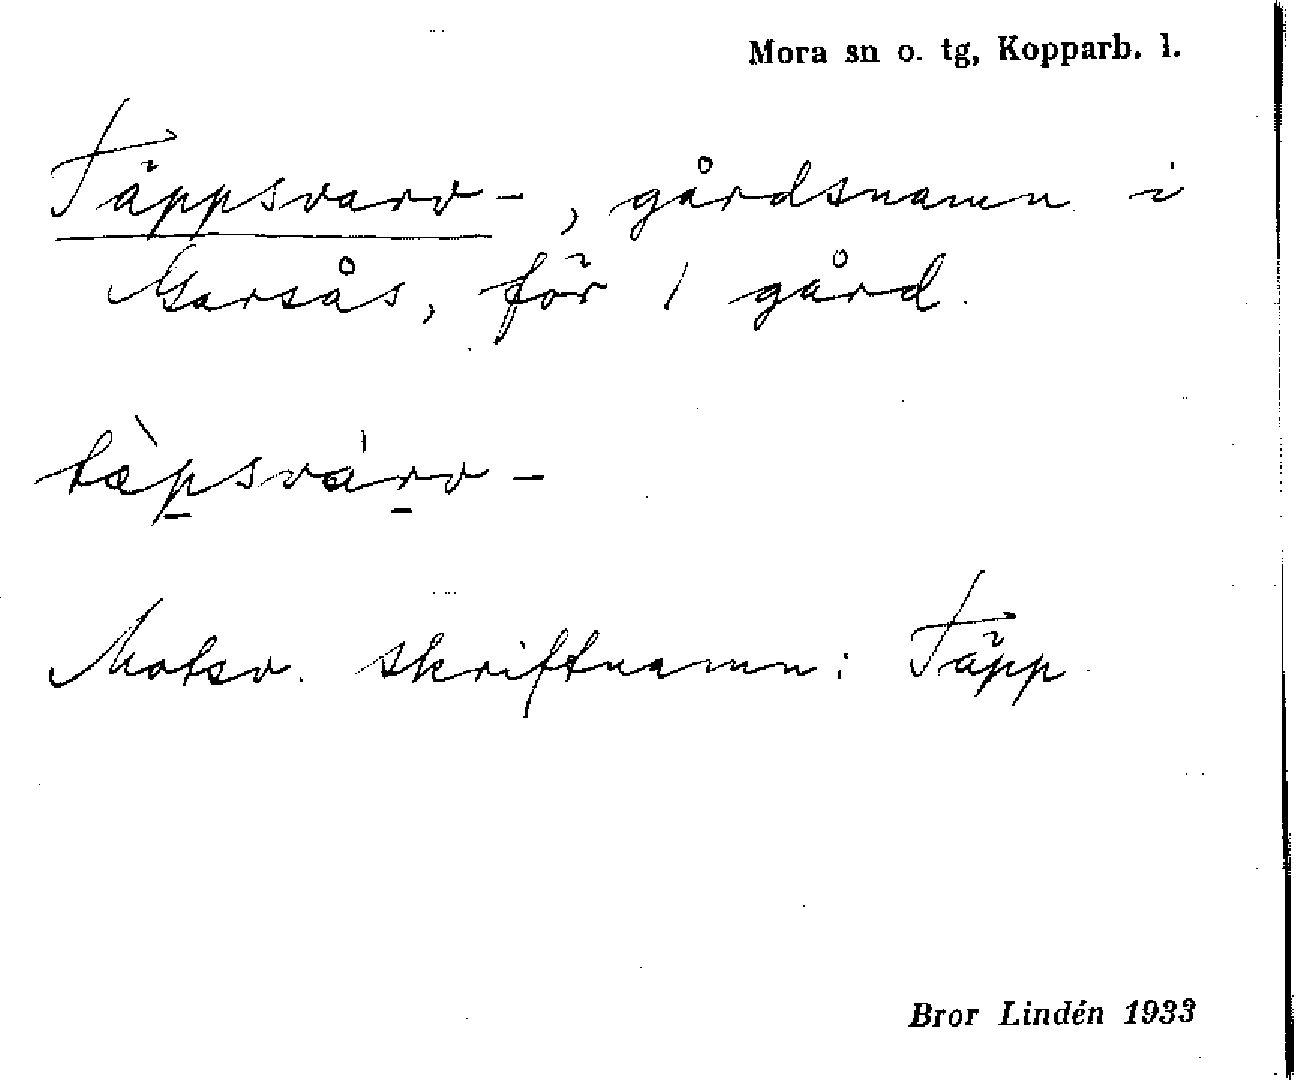 Mora sn o. tg, Kopparb. l.
Täppsvarv-, gårdsnamn i
Garsås, för 1 gård.
tæ̀psvárv-
Motsv. skriftnamn: Täpp
Bror Lindén 1933